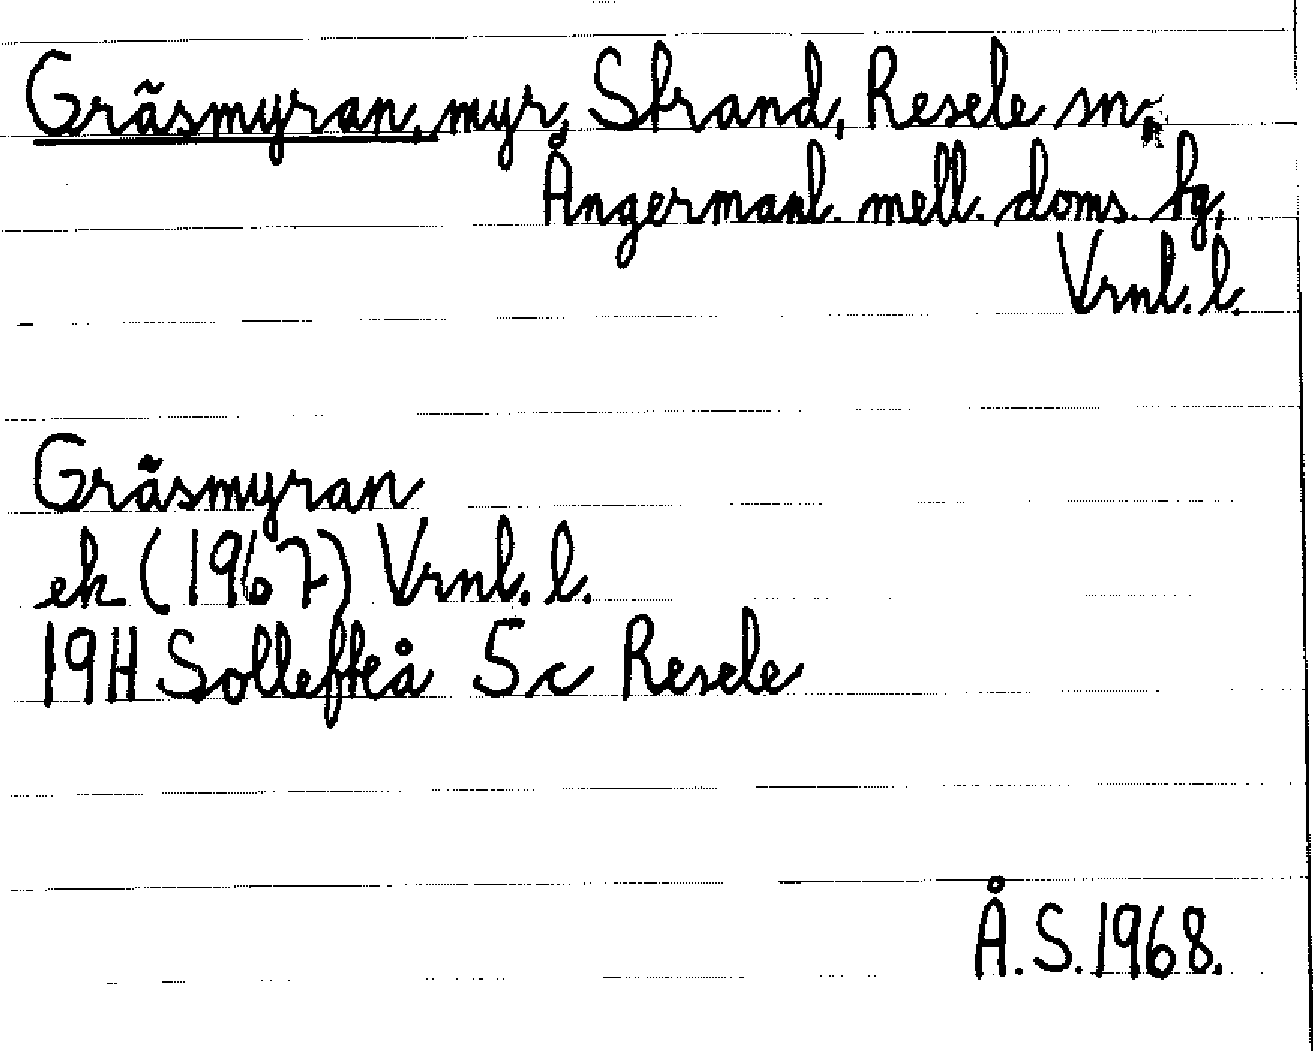 Gräsmyran, myr, Strand, Resele sn,
Ångermanl. mell. doms. fg,
Vrnl. l.
Gräsmyran
ek (1967) Vrnl. l.
19H Sollefteå 5c Resele
Å.S. 1968.